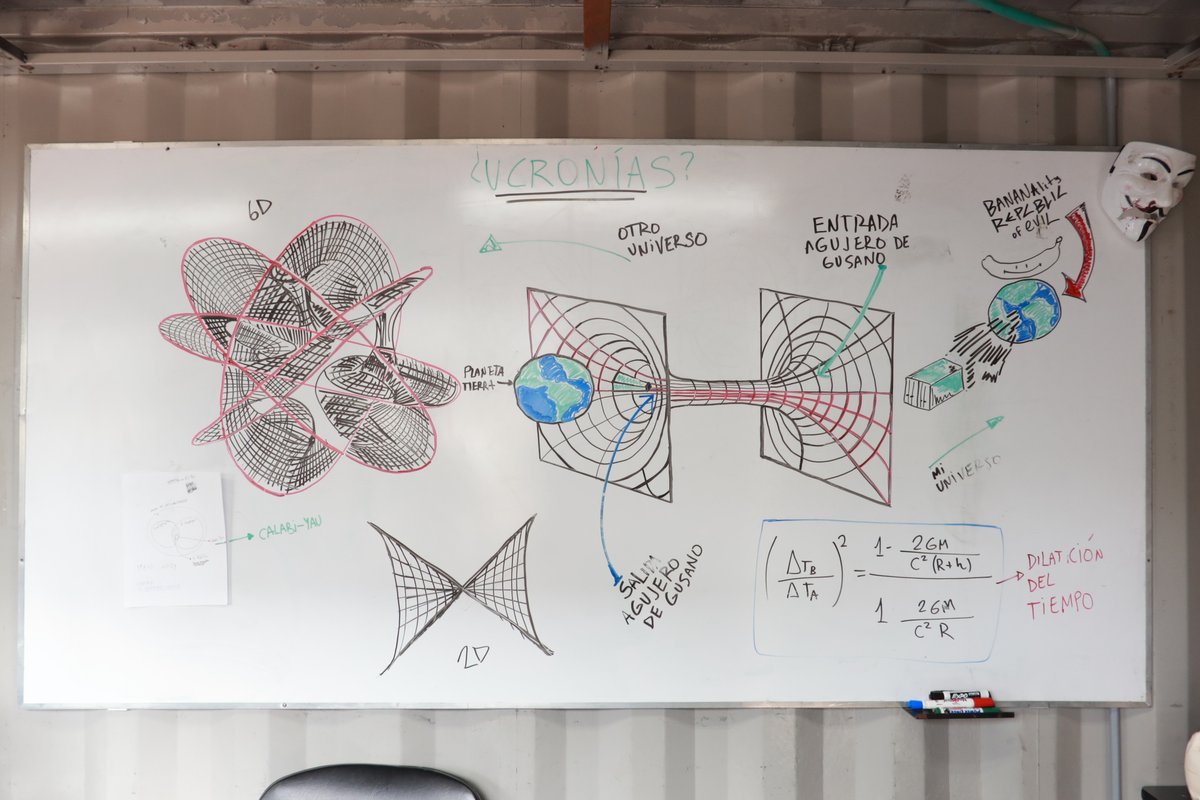 ¿UCRONÍAS?
6D
OTRO
UNIVERSO
ENTRADA
AGUJERO DE
GUSANO
BANANAlity
REPUBLIC
of EVIL
PLANETA
TIERRA
MI
UNIVERSO
CALABI-YAU
2D
SALIDA
AGUJERO
DE GUSANO
(ΔTB/ΔTA)² = 1- 2GM/C²(R+h)
1 2GM/C²R
DILATACIÓN
DEL
TIEMPO
EXPO